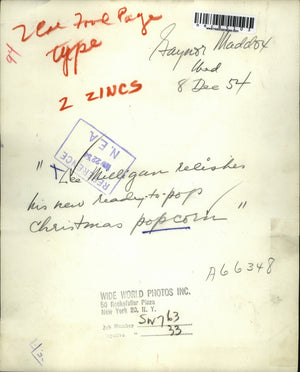 2 Col Food Page
type
94
2 ZINCS
Gaynor Maddox
Wed
8 Dec 54
REFERENCE
N.E.A.
" Lee Mulligan relishes
his new ready-to-pop
Christmas popcorn "
A66348
WIDE WORLD PHOTOS INC.
50 Rockefeller Plaza
New York 20, N. Y.
Job Number SW763
" 33